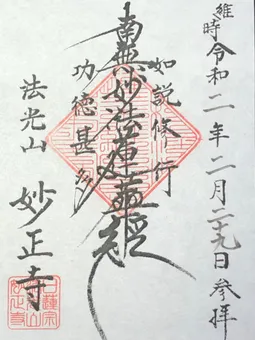 維時令和二年二月二十九日参拝
如説修行
南無妙法蓮華経
功徳甚多
法光山
妙正寺